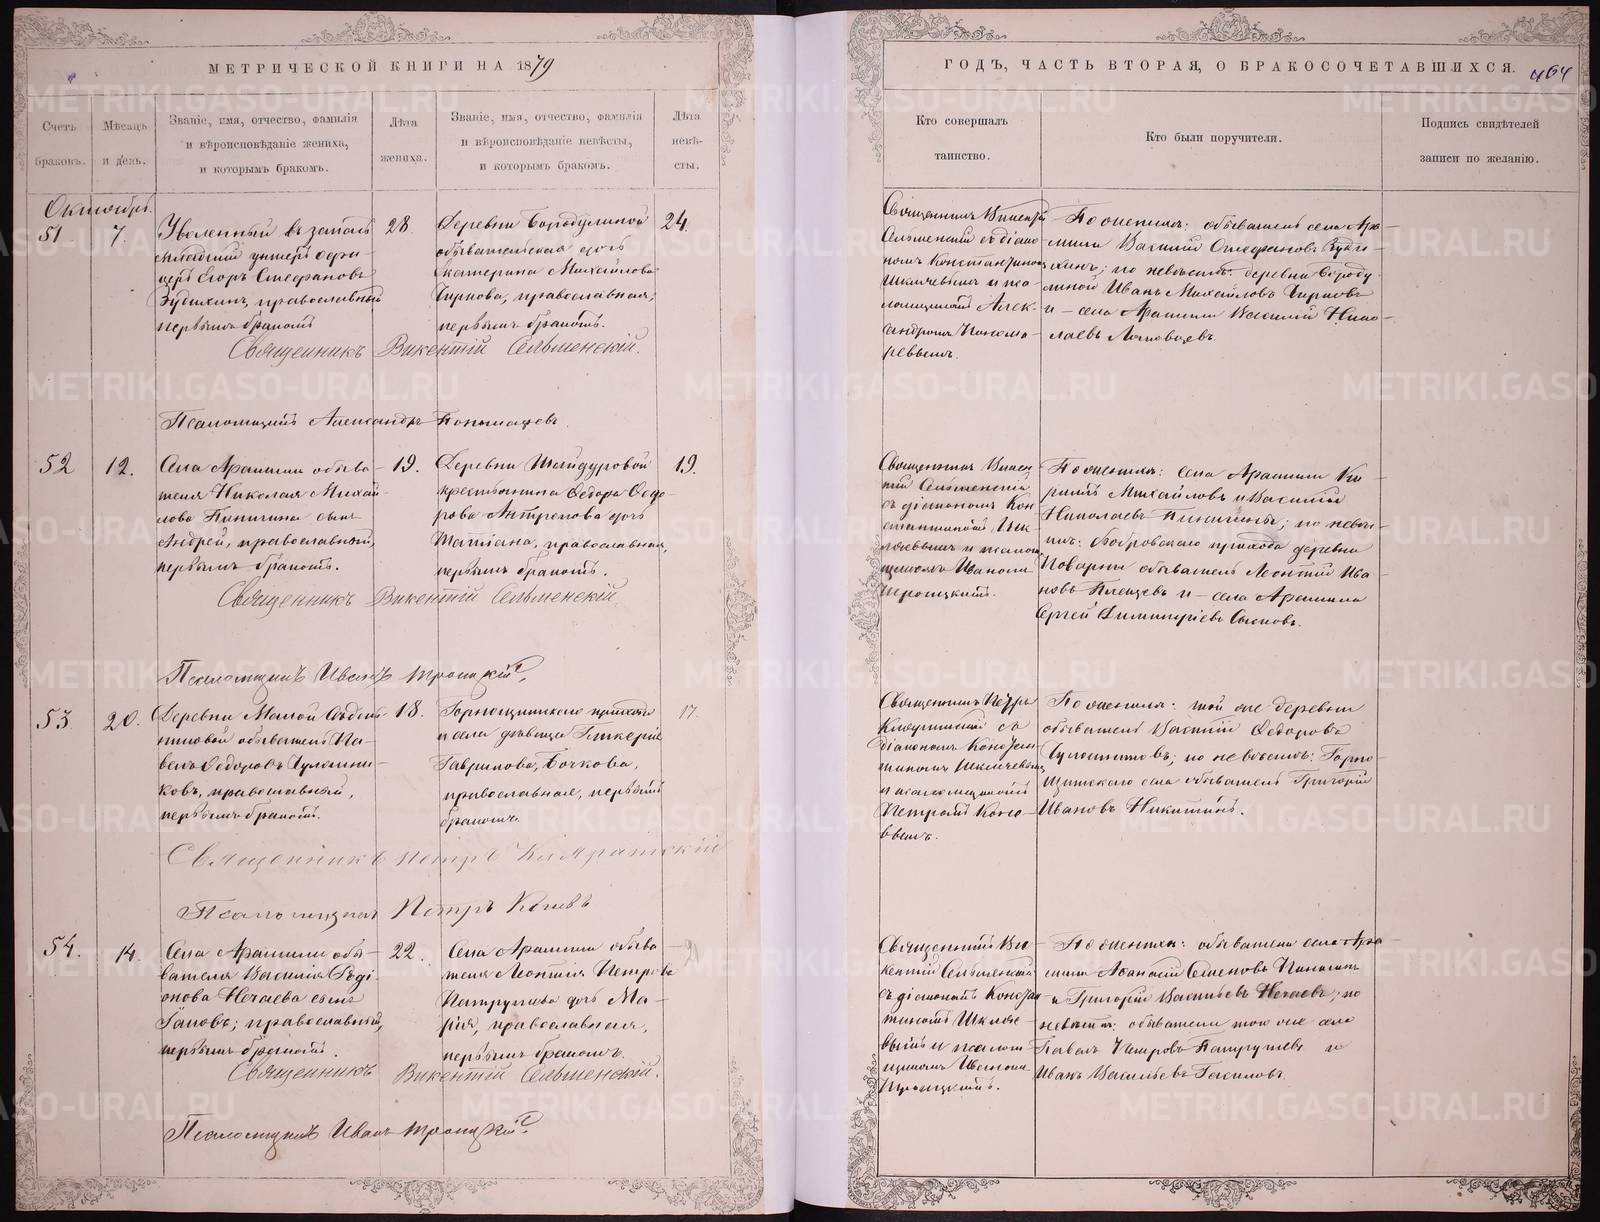 МЕТРИЧЕСКОЙ КНИГИ НА 1879
Счетъ браковъ.
Мѣсяцъ и день.
Званіе, имя, отчество, фамилія
и вѣроисповѣданіе жениха,
и которымъ бракомъ.
Лѣта
жениха.
Званіе, имя, отчество, фамилія
и вѣроисповѣданіе невѣсты,
и которымъ бракомъ.
Лѣта
невѣ-
сты.
Октябрь.
51
7.
Уволенный въ запасъ
младшій унтеръ офи-
церъ Егоръ Стефановъ
Зудихинъ, православный
первымъ бракомъ
28.
Деревни Бородулиной
обывательская дочь
Екатерина Михайлова
Чиркова, православная,
первымъ бракомъ.
24.
Священникъ Викентій Сельменскій.
Псаломщикъ Александръ Пономаревъ.
52
12.
Села Арамили обыва-
теля Николая Михай-
лова Пинигина сынъ
Андрей, православный,
первымъ бракомъ.
19.
Деревни Шайдуровой
крестьянина Ѳедора Ѳедо-
рова Антропова дочь
Татіана, православная,
первымъ бракомъ.
19.
Священникъ Викентій Сельменскій.
Псаломщикъ Иванъ Троицкій.
53.
20.
Деревни Малой Сѣдель-
никовой обыватель Па-
велъ Ѳедоровъ Чулошни-
ковъ, православный,
первымъ бракомъ.
18.
Горнощитскаго прихода
и села дѣвица Гликерія
Гаврилова, Бочкова,
православная, первымъ
бракомъ.
17.
Священникъ Петръ
Псаломщикъ Петръ Коневъ
54.
14.
Села Арамили обы-
вателя Василія Родi-
онова Нечаева сынъ
Іаковъ; православный,
первымъ бракомъ.
22.
Села Арамили обыва-
теля Леонтія Петрова
Патрушева дочь Ма-
рія, православная,
первымъ бракомъ.
Священникъ Викентій Сельменскій.
Псаломщикъ Иванъ Троицкій.
ГОДЪ, ЧАСТЬ ВТОРАЯ, О БРАКОСОЧЕТАВШИХСЯ.
464
Кто совершалъ
таинство.
Кто были поручители.
Подпись свидѣтелей
записи по желанію.
Священникъ Викентій
Сельменскій съ діако-
номъ Константиномъ
Шкляевымъ и пса-
ломщикомъ Алек-
сандромъ Понома-
ревымъ.
По женихѣ: обыватель села Ара-
мили Василій Стефановъ Зуди-
хинъ; по невѣстѣ: деревни Бороду-
линой Иванъ Михайловъ Чирковъ
и села Арамили Василій Нико-
лаевъ
Священникъ Викен-
тій Сельменскій
съ діакономъ Кон-
стантиномъ Шк-
ляевымъ и псалом-
щикомъ Иваномъ
Троицкимъ.
По женихѣ: села Арамили Ки-
риллъ Михайловъ и Василій
Николаевъ Пинигины; по невѣс-
тѣ: Бобровскаго прихода деревни
Поварни обыватель Леонтій Ива-
новъ и села Арамили
Сергей Димитріевъ
Священникъ Петръ
съ
діакономъ Констан-
тиномъ Шкляевымъ
и псаломщикомъ
Петромъ Коне-
вымъ.
По женихѣ: той же деревни
обыватель Василій Ѳедоровъ
Чулошниковъ; по невѣстѣ: Горно-
щитскаго села обыватель Григорій
Ивановъ Никитинъ.
Священникъ Ви-
кентій Сельменскій
съ діакономъ Констан-
тиномъ Шкляе-
вымъ и псалом-
щикомъ Иваномъ
Троицкимъ.
По женихѣ: обыватели села Ара-
мили Аѳанасій Семеновъ
и Григорій Васильевъ Нечаевъ; по
невѣстѣ: обыватели того же села
Павелъ Петровъ Патрушевъ и
Иванъ Васильевъ
METRIKI.GASO-URAL.RU